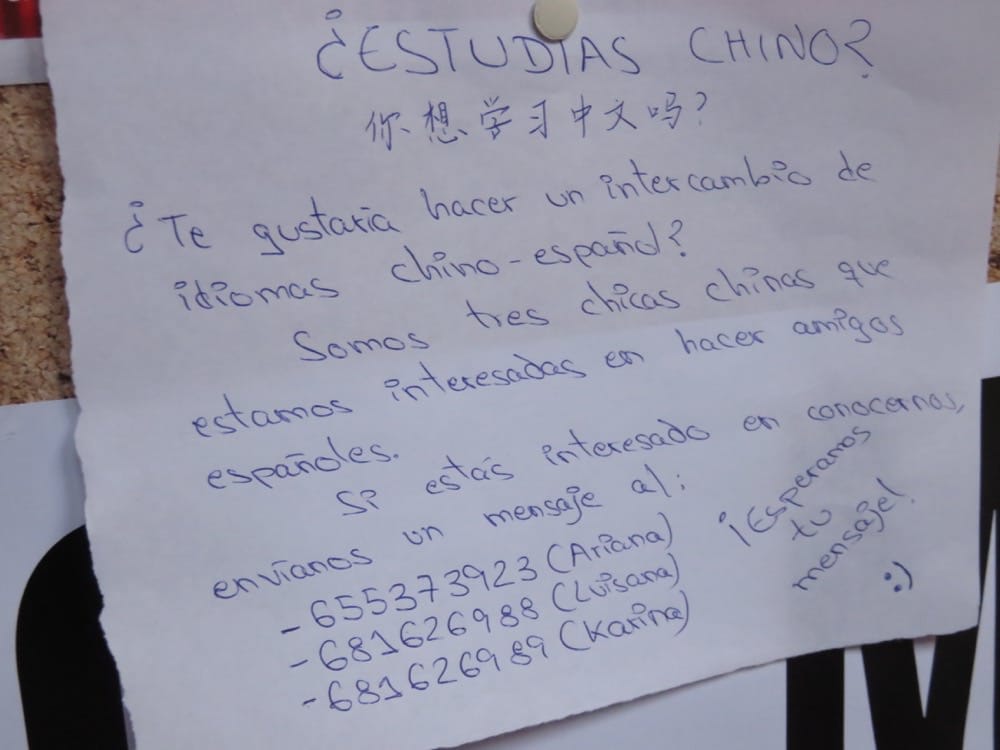 ¿ESTUDIAS CHINO?
你想学习中文吗?
¿Te gustaría hacer un intercambio de
idiomas chino-español?
Somos tres chicas chinas que
estamos interesadas en hacer amigos
españoles.
Si estás interesado en conocernos,
envíanos un mensaje al:
- 655373923 (Ariana)
- 681626988 (Luisana)
- 681626989 (Karina)
¡Esperamos
tu
mensaje!
:)